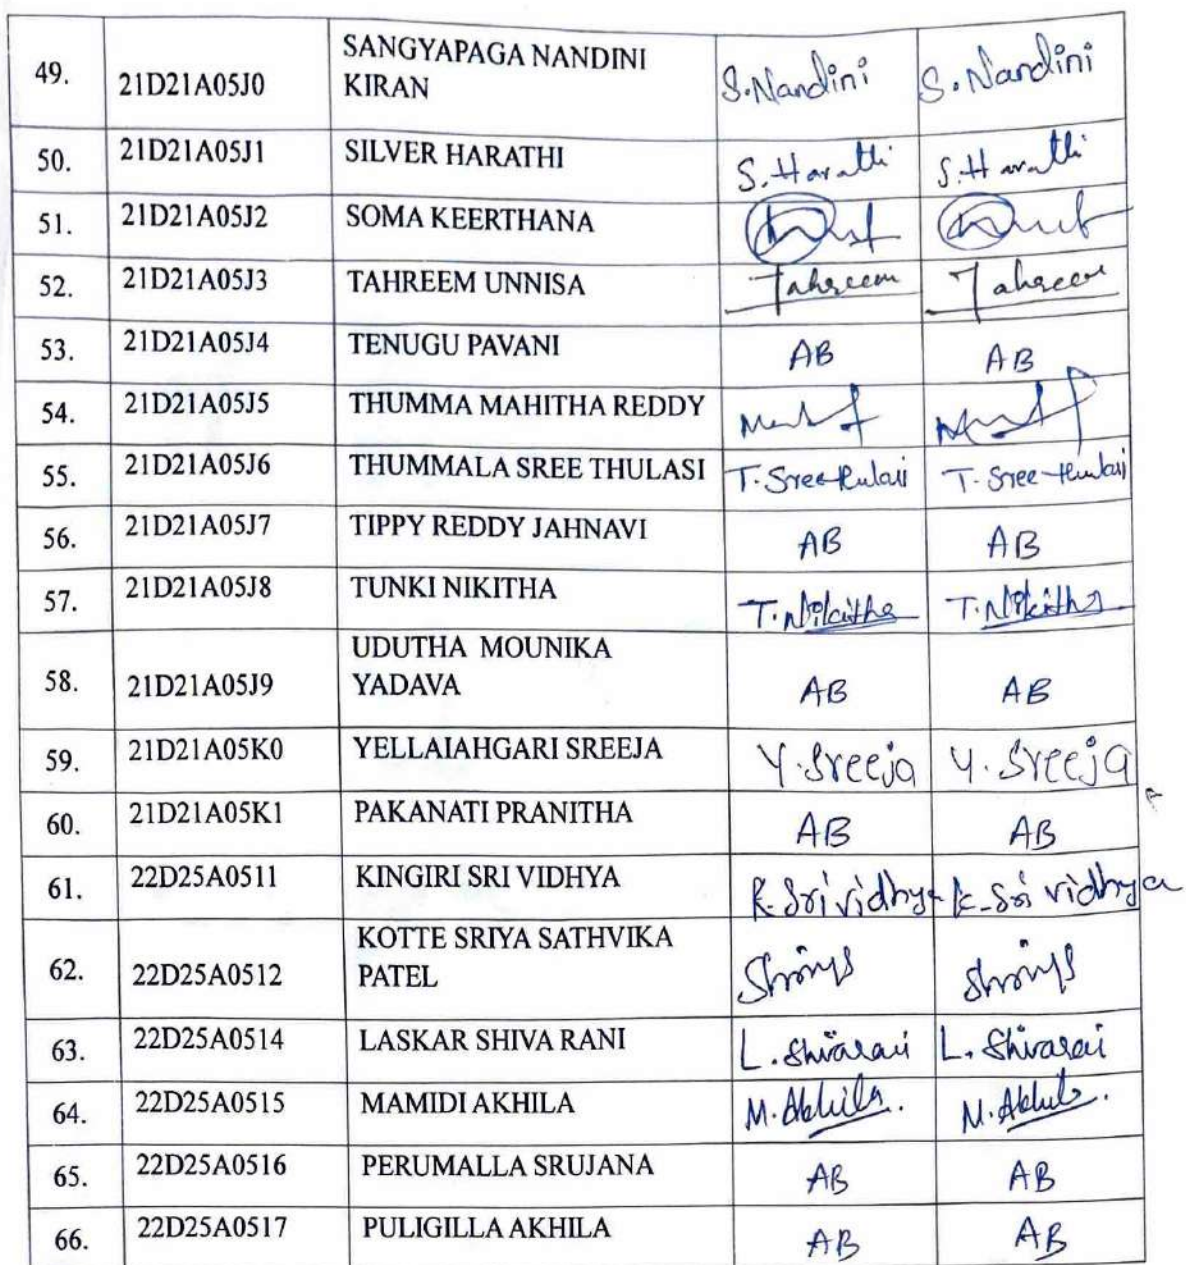 49. 21D21A05J0 SANGYAPAGA NANDINI KIRAN S.Nandini S.Nandini
50. 21D21A05J1 SILVER HARATHI S.Harathi S.Harathi
51. 21D21A05J2 SOMA KEERTHANA
52. 21D21A05J3 TAHREEM UNNISA Tahreem Tahreem
53. 21D21A05J4 TENUGU PAVANI AB AB
54. 21D21A05J5 THUMMA MAHITHA REDDY
55. 21D21A05J6 THUMMALA SREE THULASI T.Sree thulasi T.Sree thulasi
56. 21D21A05J7 TIPPY REDDY JAHNAVI AB AB
57. 21D21A05J8 TUNKI NIKITHA T.Nikitha T.Nikitha
58. 21D21A05J9 UDUTHA MOUNIKA YADAVA AB AB
59. 21D21A05K0 YELLAIAHGARI SREEJA Y.Sreeja Y.Sreeja
60. 21D21A05K1 PAKANATI PRANITHA AB AB
61. 22D25A0511 KINGIRI SRI VIDHYA K.Sri vidhya K.Sri vidhya
62. 22D25A0512 KOTTE SRIYA SATHVIKA PATEL
63. 22D25A0514 LASKAR SHIVA RANI L.Shivarani L.Shivarani
64. 22D25A0515 MAMIDI AKHILA M.Akhila. M.Akhila.
65. 22D25A0516 PERUMALLA SRUJANA AB AB
66. 22D25A0517 PULIGILLA AKHILA AB AB